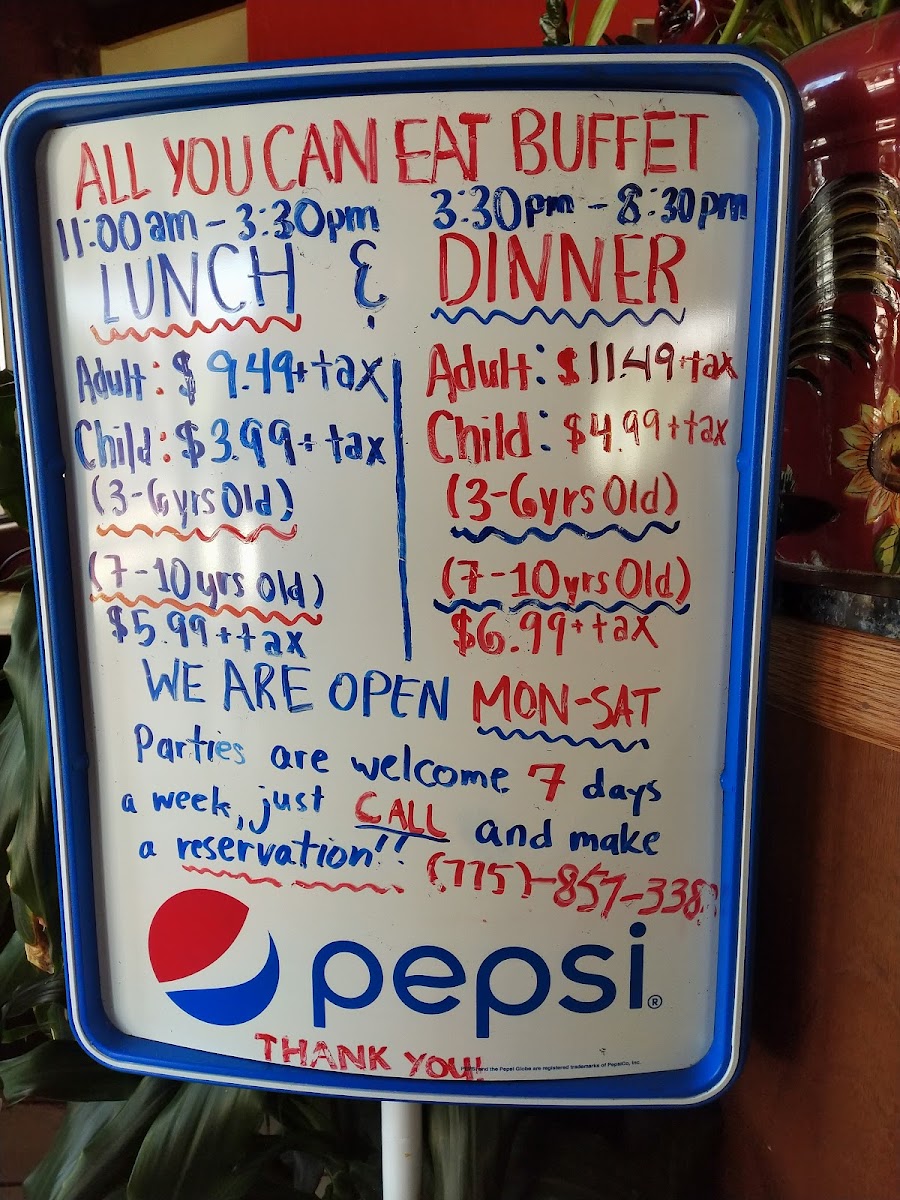 ALL YOU CAN EAT BUFFET
11:00am - 3:30pm 3:30pm - 8:30pm
LUNCH & DINNER
Adult: $9.49+tax Adult: $11.49+tax
Child: $3.99+tax Child: $4.99+tax
(3-6yrs Old) (3-6yrs Old)
(7-10yrs Old) (7-10yrs Old)
$5.99+tax $6.99+tax
WE ARE OPEN MON-SAT
Parties are welcome 7 days
a week, just CALL and make
a reservation!!
pepsi®
THANK YOU!
PEPSI and the Pepsi Globe are registered trademarks of PepsiCo, Inc.